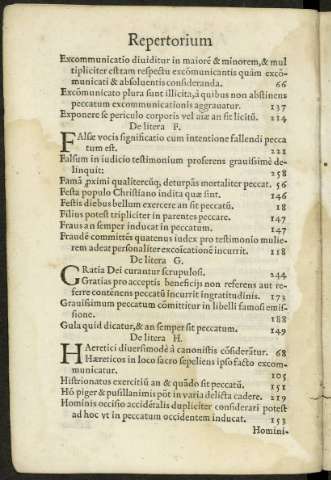 Repertorium
Excommunicatio diuiditur in maiorē & minorem, & mul
tipliciter est tam respectu excōmunicantis quàm excō-
municati & absoluentis consideranda. 66
Excōmunicato plura sunt illicita, à quibus non abstinens
peccatum excommunicationis aggrauatur. 137
Exponere se periculo corporis vel aīæ an sit licitū. 214
De litera F.
FAlse vocis significatio cum intentione fallendi pecca
tum est. 222
Falsum in iudicio testimonium proferens grauisimè de-
linquit: 258
Famā ꝓximi qualitercūq; deturpās mortaliter peccat. 56
Festa populo Christiano indita quæ sint. 146
Festis diebus bellum exercere an sit peccatū. 18
Filius potest tripliciter in parentes peccare. 147
Fraus an semper inducat in peccatum. 147
Fraudē committēs quatenus iudex pro testimonio mulie-
rem adeat personaliter excōicationē incurrit. 118
De litera G.
GRatia Dei curantur scrupulosi. 244
Gratias pro acceptis beneficijs non referens aut re-
ferre contēnens peccatū incurrit ingratitudinis. 173
Grauissimum peccatum cōmittitur in libelli famosi emis-
sione. 188
Gula quid dicatur, & an semper sit peccatum. 149
De litera H.
HAeretici diuersimodè à canonistis cōsiderātur. 68
Hæreticos in loco sacro sepeliens ipso facto excom-
municatur. 105
Histrionatus exercitiū an & quādo sit peccatū. 151
Hō piger & pusillanimis pōt in varia delicta cadere. 219
Hominis occisio accidētalis dupliciter considerari potest
ad hoc vt in peccatum occidentem inducat. 153
Homini-